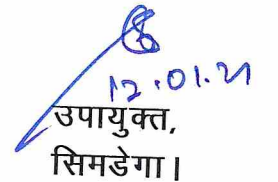 12.01.21
उपायुक्त,
सिमडेगा।